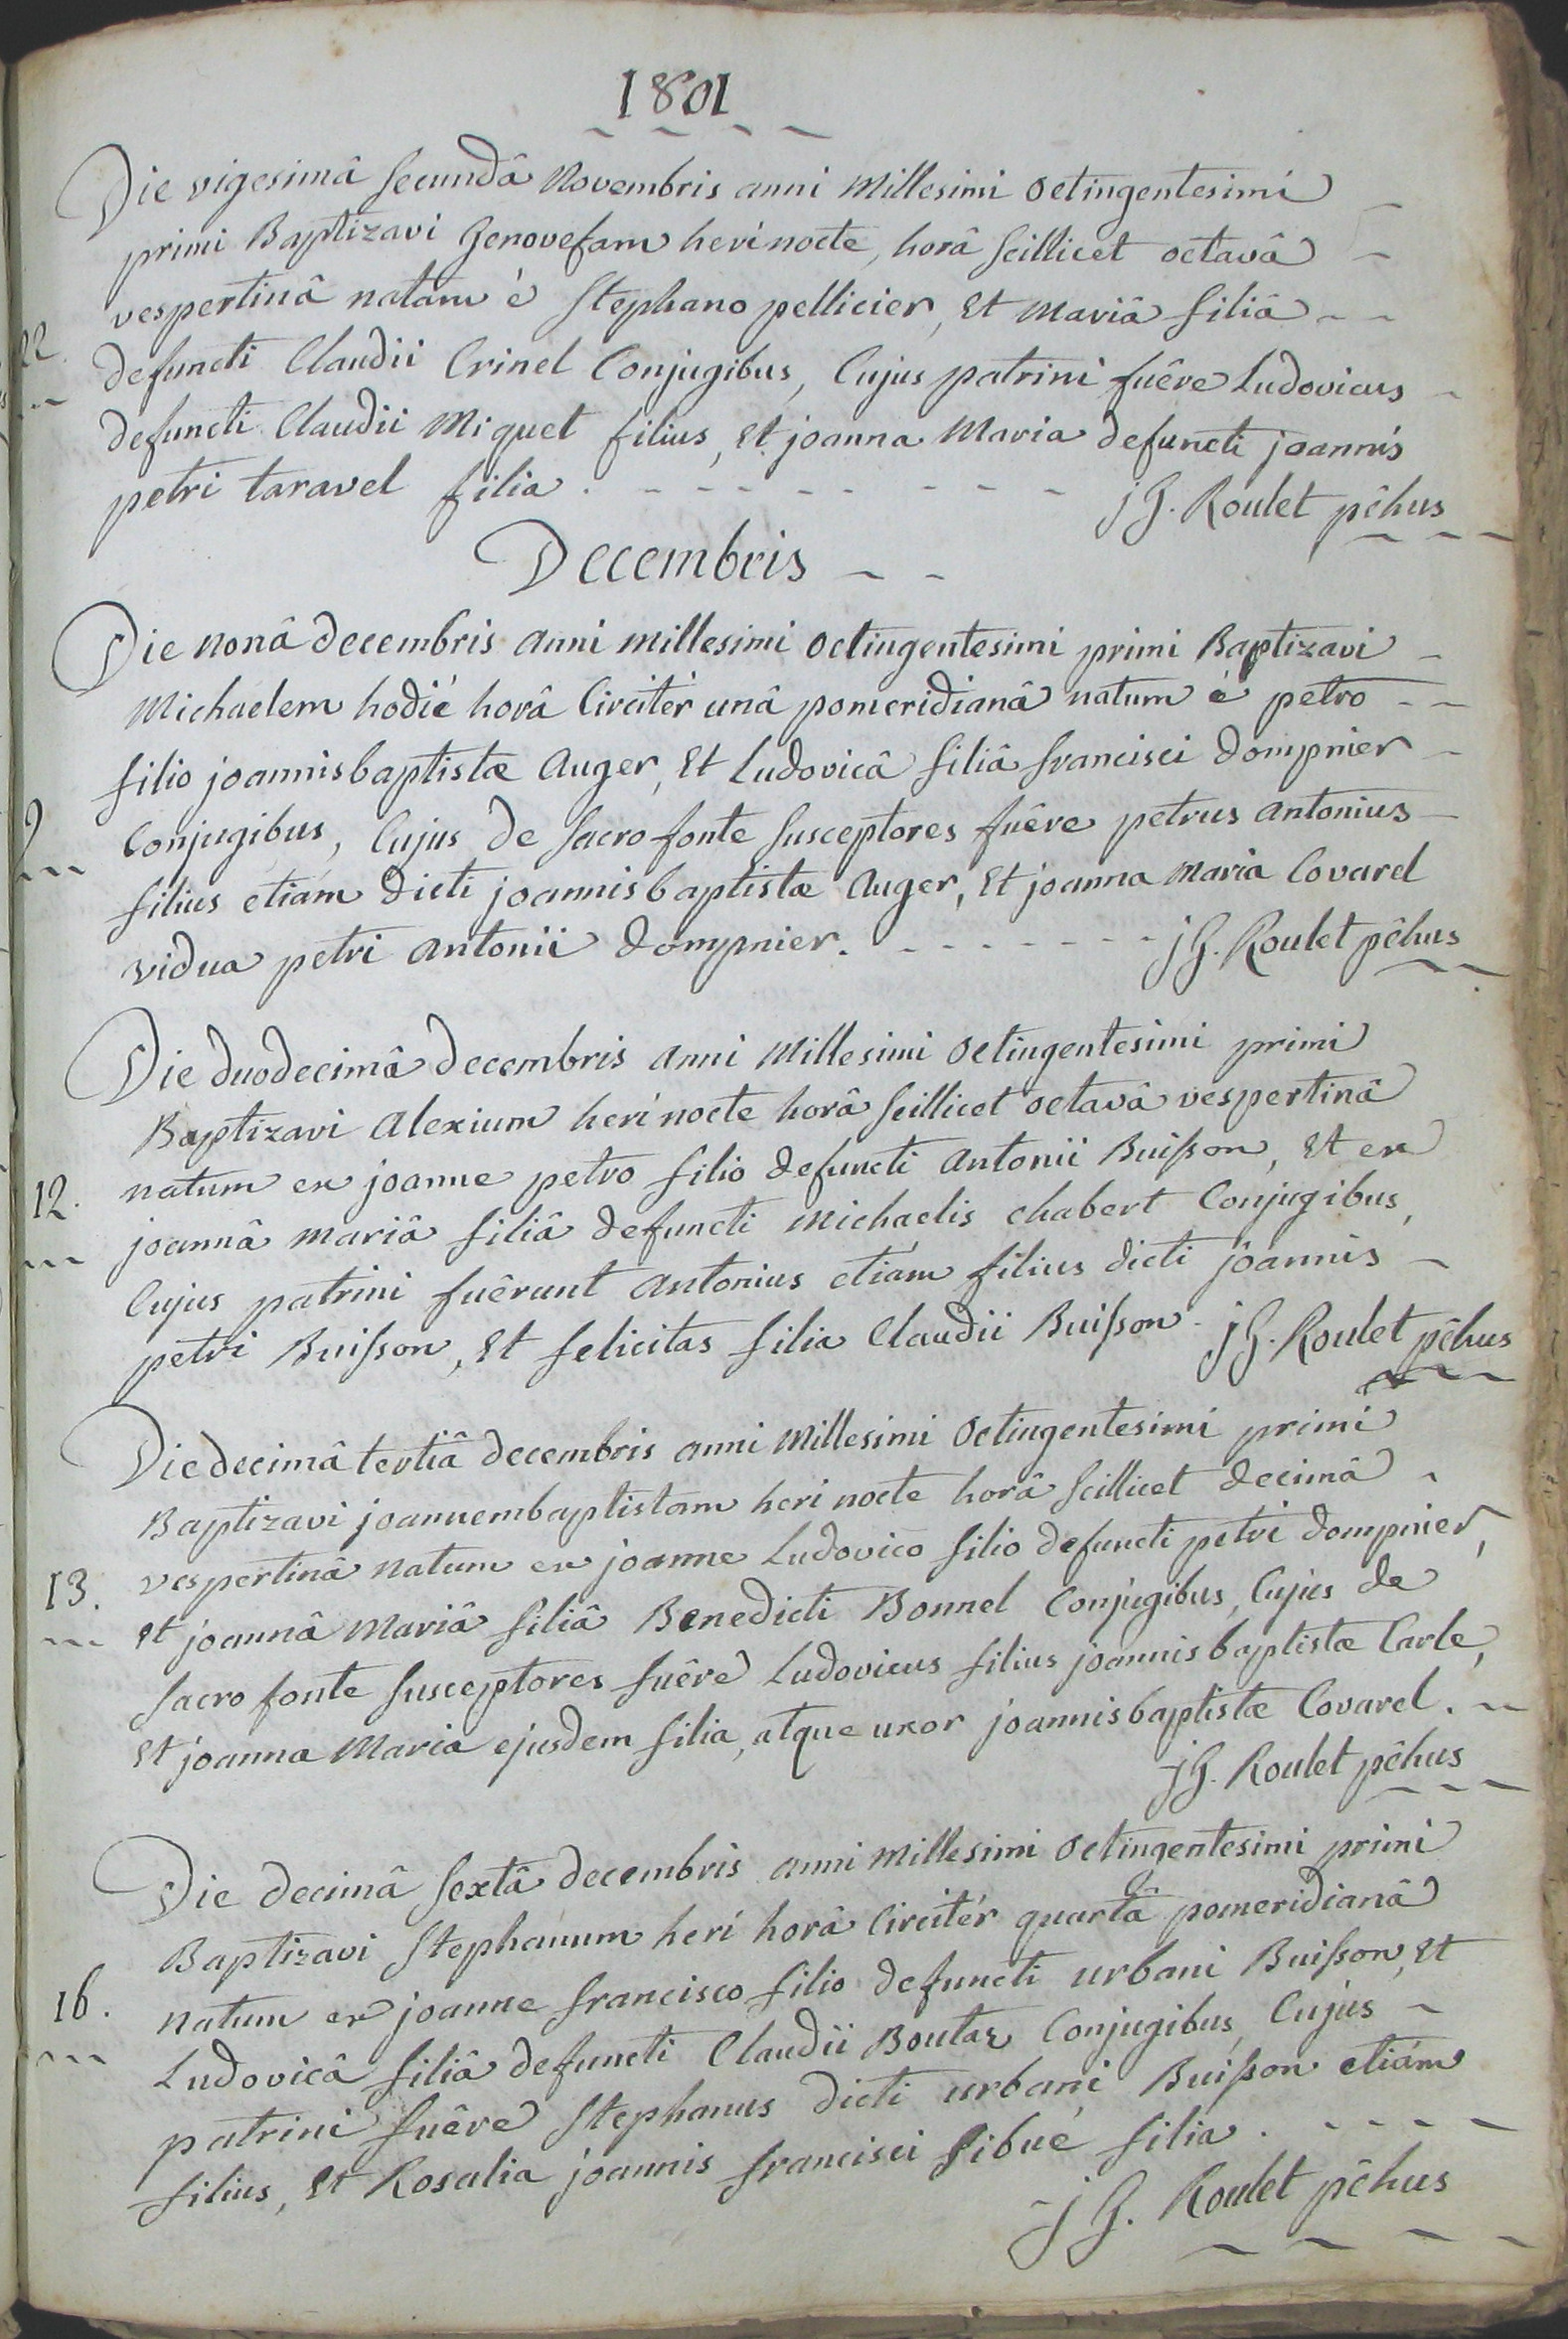 1801
Die vigesimâ secundâ Novembris anni Millesimi octingentesimi
primi Baptizavi Genovefam heri nocte, horâ scillicet octavâ
vespertinâ natam è Stephano pellicier, et Mariâ filiâ
22. defuncti Claudii Crinel Conjugibus, Cujus patrini fuêre Ludovicus
defuncti Claudii Miquet filius, et joanna Maria defuncti joannis
petri taravel filia. jG. Roulet pêhus
Decembris
Die nonâ decembris anni millesimi octingentesimi primi Baptizavi
Michaelem hodiè horâ Circitèr unâ pomeridianâ natum è petro
filio joannisbaptistæ Auger, et Ludovicâ filiâ francisci dompnier
9 Conjugibus, Cujus de sacro fonte susceptores fuêre petrus antonius
filius etiám dicti joannisbaptistæ Auger, et joanna maria Covarel
vidua petri antonii dompnier. jG. Roulet pêhus
Die duodecimâ decembris anni Millesimi octingentesimi primi
Baptizavi Alexium heri nocte horâ scillicet octavâ vespertinâ
natum ex joanne petro filio defuncti antonii Buisson, et ex
12. joannâ mariâ filiâ defuncti michaelis chabert Conjugibus,
Cujus patrini fuêrunt antonius etiám filius dicti joannis
petri Buisson, et felicitas filia Claudii Buisson. jG. Roulet pêhus
Die decimâ tertiâ decembris anni Millesimi octingentesimi primi
Baptizavi joannembaptistam heri nocte horâ scillicet decimâ
vespertinâ natum ex joanne Ludovico filio defuncti petri dompnier,
13. et joannâ Mariâ filiâ Benedicti Bonnel Conjugibus, Cujus de
sacro fonte susceptores fuêre Ludovicus filius joannisbaptistæ Carle,
et joanna Maria ejusdem filia, atque uxor joannisbaptistæ Covarel.
jG. Roulet pêhus
Die decimâ sextâ decembris anni Millesimi octingentesimi primi
Baptizavi Stephanum heri horâ Circitèr quartâ pomeridianâ
16. natum ex joanne francisco filio defuncti urbani Buisson, et
Ludovicâ filiâ defuncti Claudii Boutaz Conjugibus, Cujus
patrini fuêre Stephanus dicti urbani Buisson etiám
filius, et Rosalia joannis francisci sibué filia.
jG. Roulet pêhus